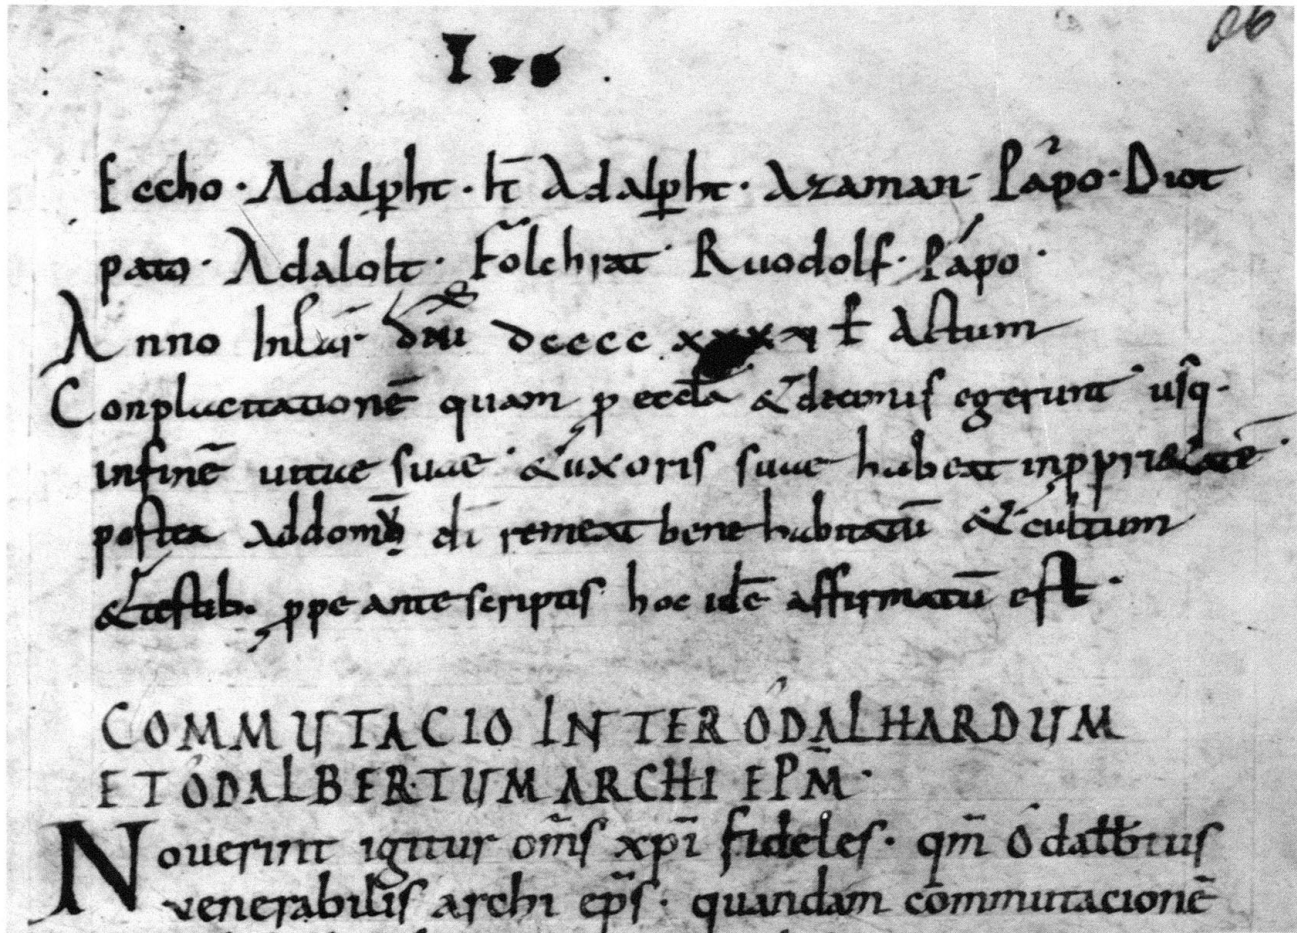 Eccho · Adalp̄ht · it̄ Adalp̄ht · Azaman · Páᵓpo · Diot
pato · Adalolt · Fõlchrat · Ruodolf · Pápo ·
Anno dccccxxxxi Actum
Conplacitationē quam p ęccła &decimis egerunt · usq̨·
infinē uitae suae · &uxoris suae habeat inp̱prietatē ·
postea addom̄ di remeat bene habitatū &cultum
&testib· p̱pe ante scriptis hoc idē affirmatū est ·
COMMUTACIO INTER ÓDALHARDUM
ET ÓDALBERTUM ARCHI EPM̄ ·
Nouerint igitur om̄s xpī fideles · qm̄ Ódalƀtus
venerabilis archi ep̄s · quandam cōmmutacionē